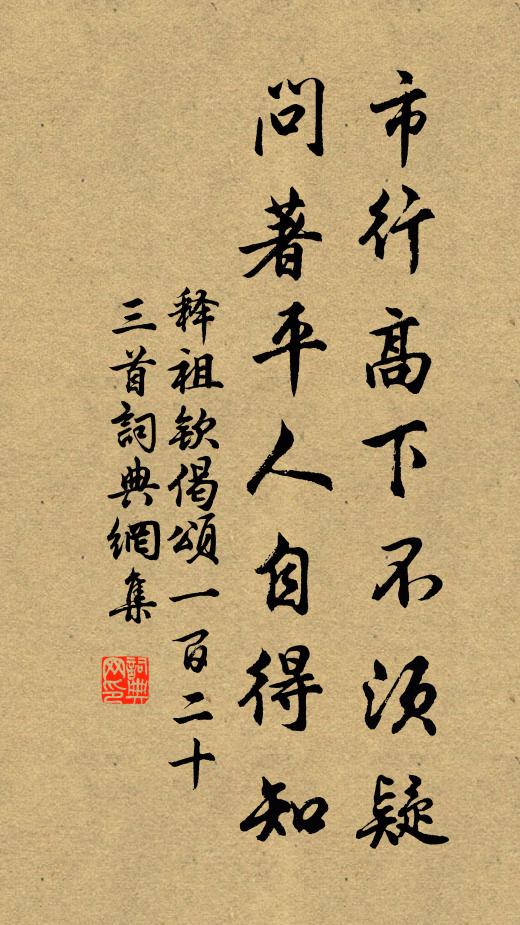 市行高下不須疑
問著平人自得知
释祖欽偈頌一百二十
三首詞典網集
詞典网印